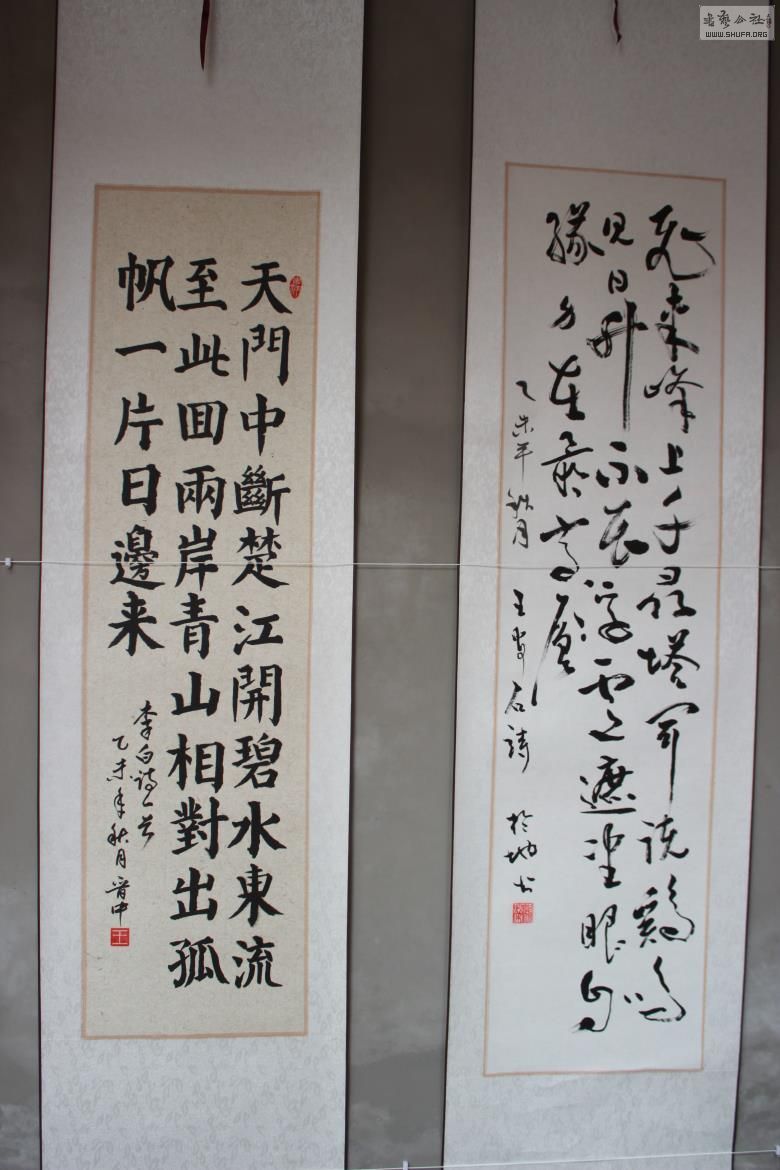 飛来峰上千尋塔聞説鷄鳴
見日升不畏浮雲遮望眼自
緣身在最高層
乙未年秋月 王安石詩 於地书
天門中斷楚江開碧水東流
至此囬兩岸青山相對出孤
帆一片日邊来
李白詩一首
乙未年秋月晋中
王
書藝公社
WWW.SHUFA.ORG